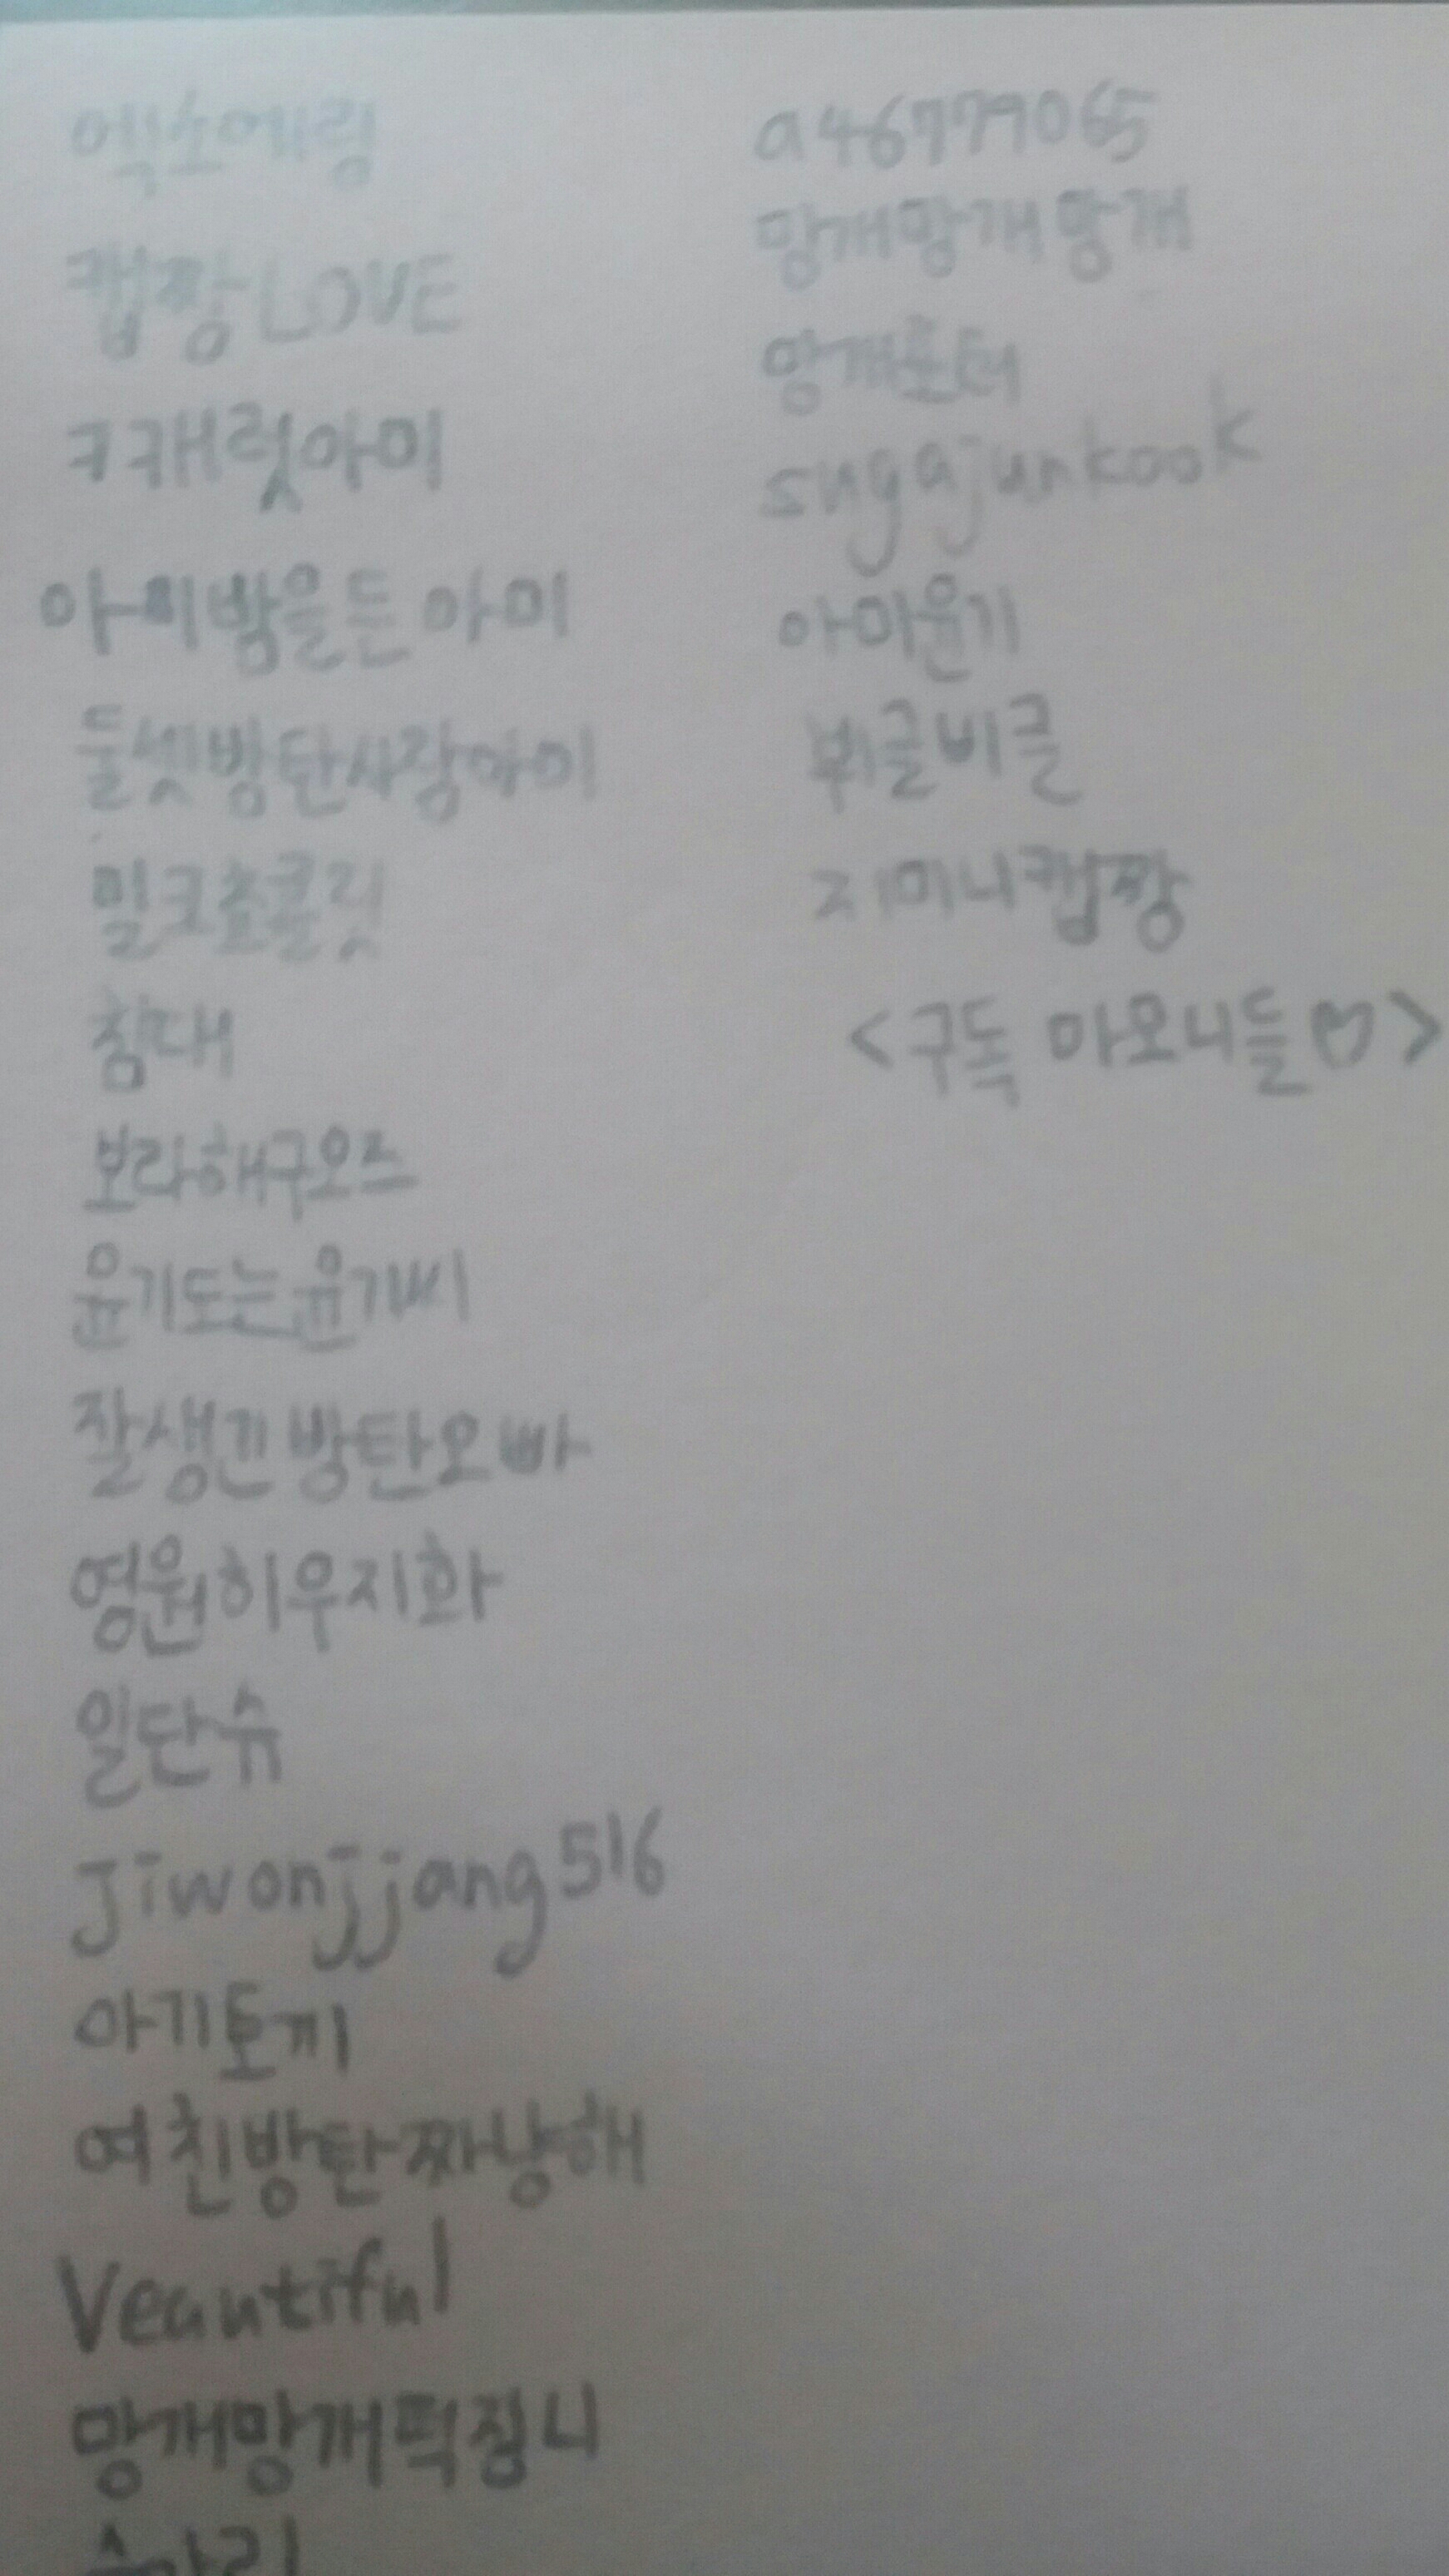 캡짱LOVE
ㅋ캐럿아미
아미밤을든아미
둘셋방탄사랑아미
밀크초콜릿
침대
보라해구오즈
윤기도는윤기씨
잘생긴방탄오빠
영원히우지화
일단슈
Jiwonjjang516
아기토끼
여친방탄짜낭해
Veautiful
망개망개떡징니
a46779065
망개망개망개
sugajunkook
아미윤기
뷔글비글
지미니캡짱
<구독 마오니들♡>